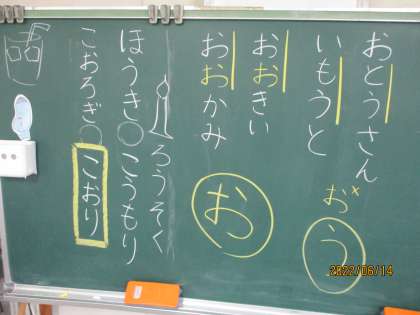 おとうさん
いもうと
お×
う
おおきい
おおかみ
お
ろうそく
ほうき○こうもり
こおろぎ○こおり
2022/06/14